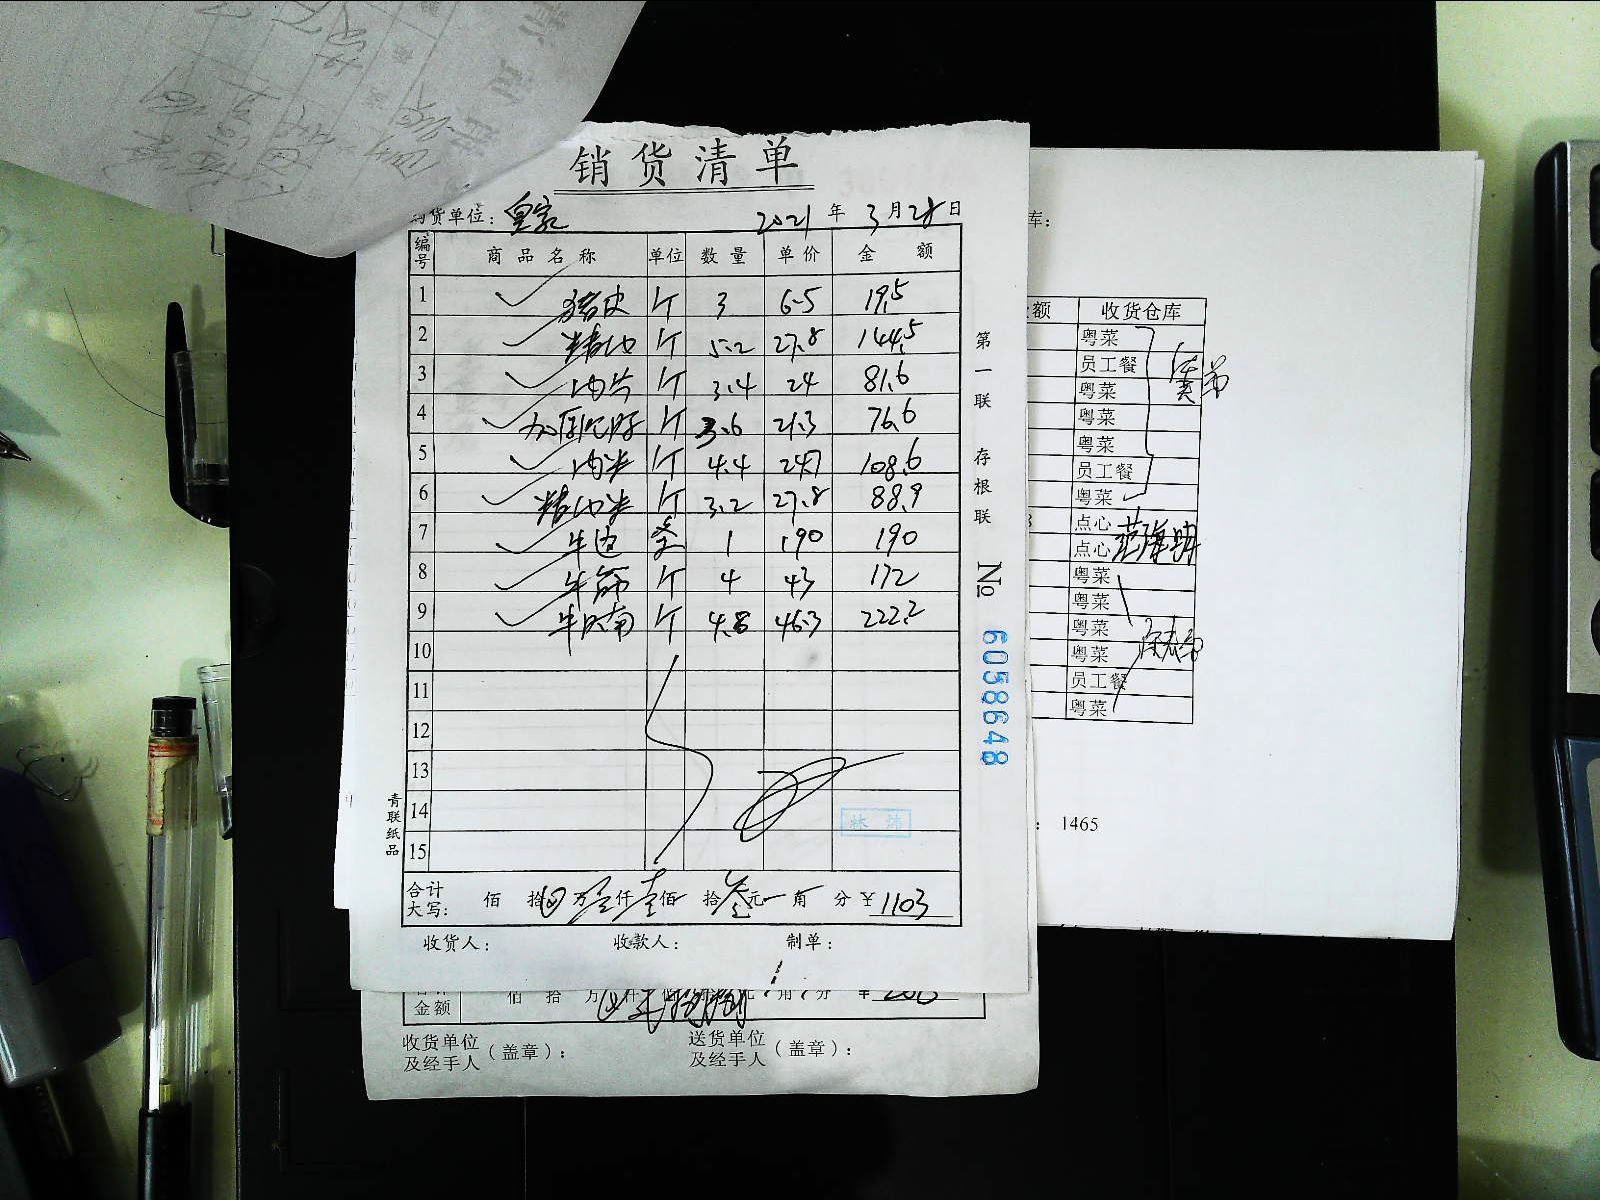 销货清单
购货单位：皇家 2021年3月28日
编号 商品名称 单位 数量 单价 金额
1 猪皮 斤 3 6.5 19.5
2 精肉 斤 5.2 27.8 144.5
3 肉片 斤 3.4 24 81.6
4 斤 3.6 21.3 76.6
5 肉米 斤 4.4 24.7 108.6
6 精肉米 斤 3.2 27.8 88.9
7 条 1 190 190
8 牛 斤 4 43 172
9 牛腩 斤 4.8 46.3 222.2
10
11
12
13
14
15
合计大写： 佰 拾 万 仟 壹佰 拾 叁元 角 分 ¥1103
收货人： 收款人： 制单：
第一联 存根联 № 6058648
青联纸品
林炜
库：
额 收货仓库
粤菜
员工餐
粤菜
粤菜
粤菜
员工餐
粤菜
点心
点心 范海明
粤菜
粤菜
粤菜
粤菜
员工餐
粤菜
：1465
金额 佰 拾 万 仟 佰 元 角 分 ¥
收货单位及经手人（盖章）： 送货单位及经手人（盖章）：